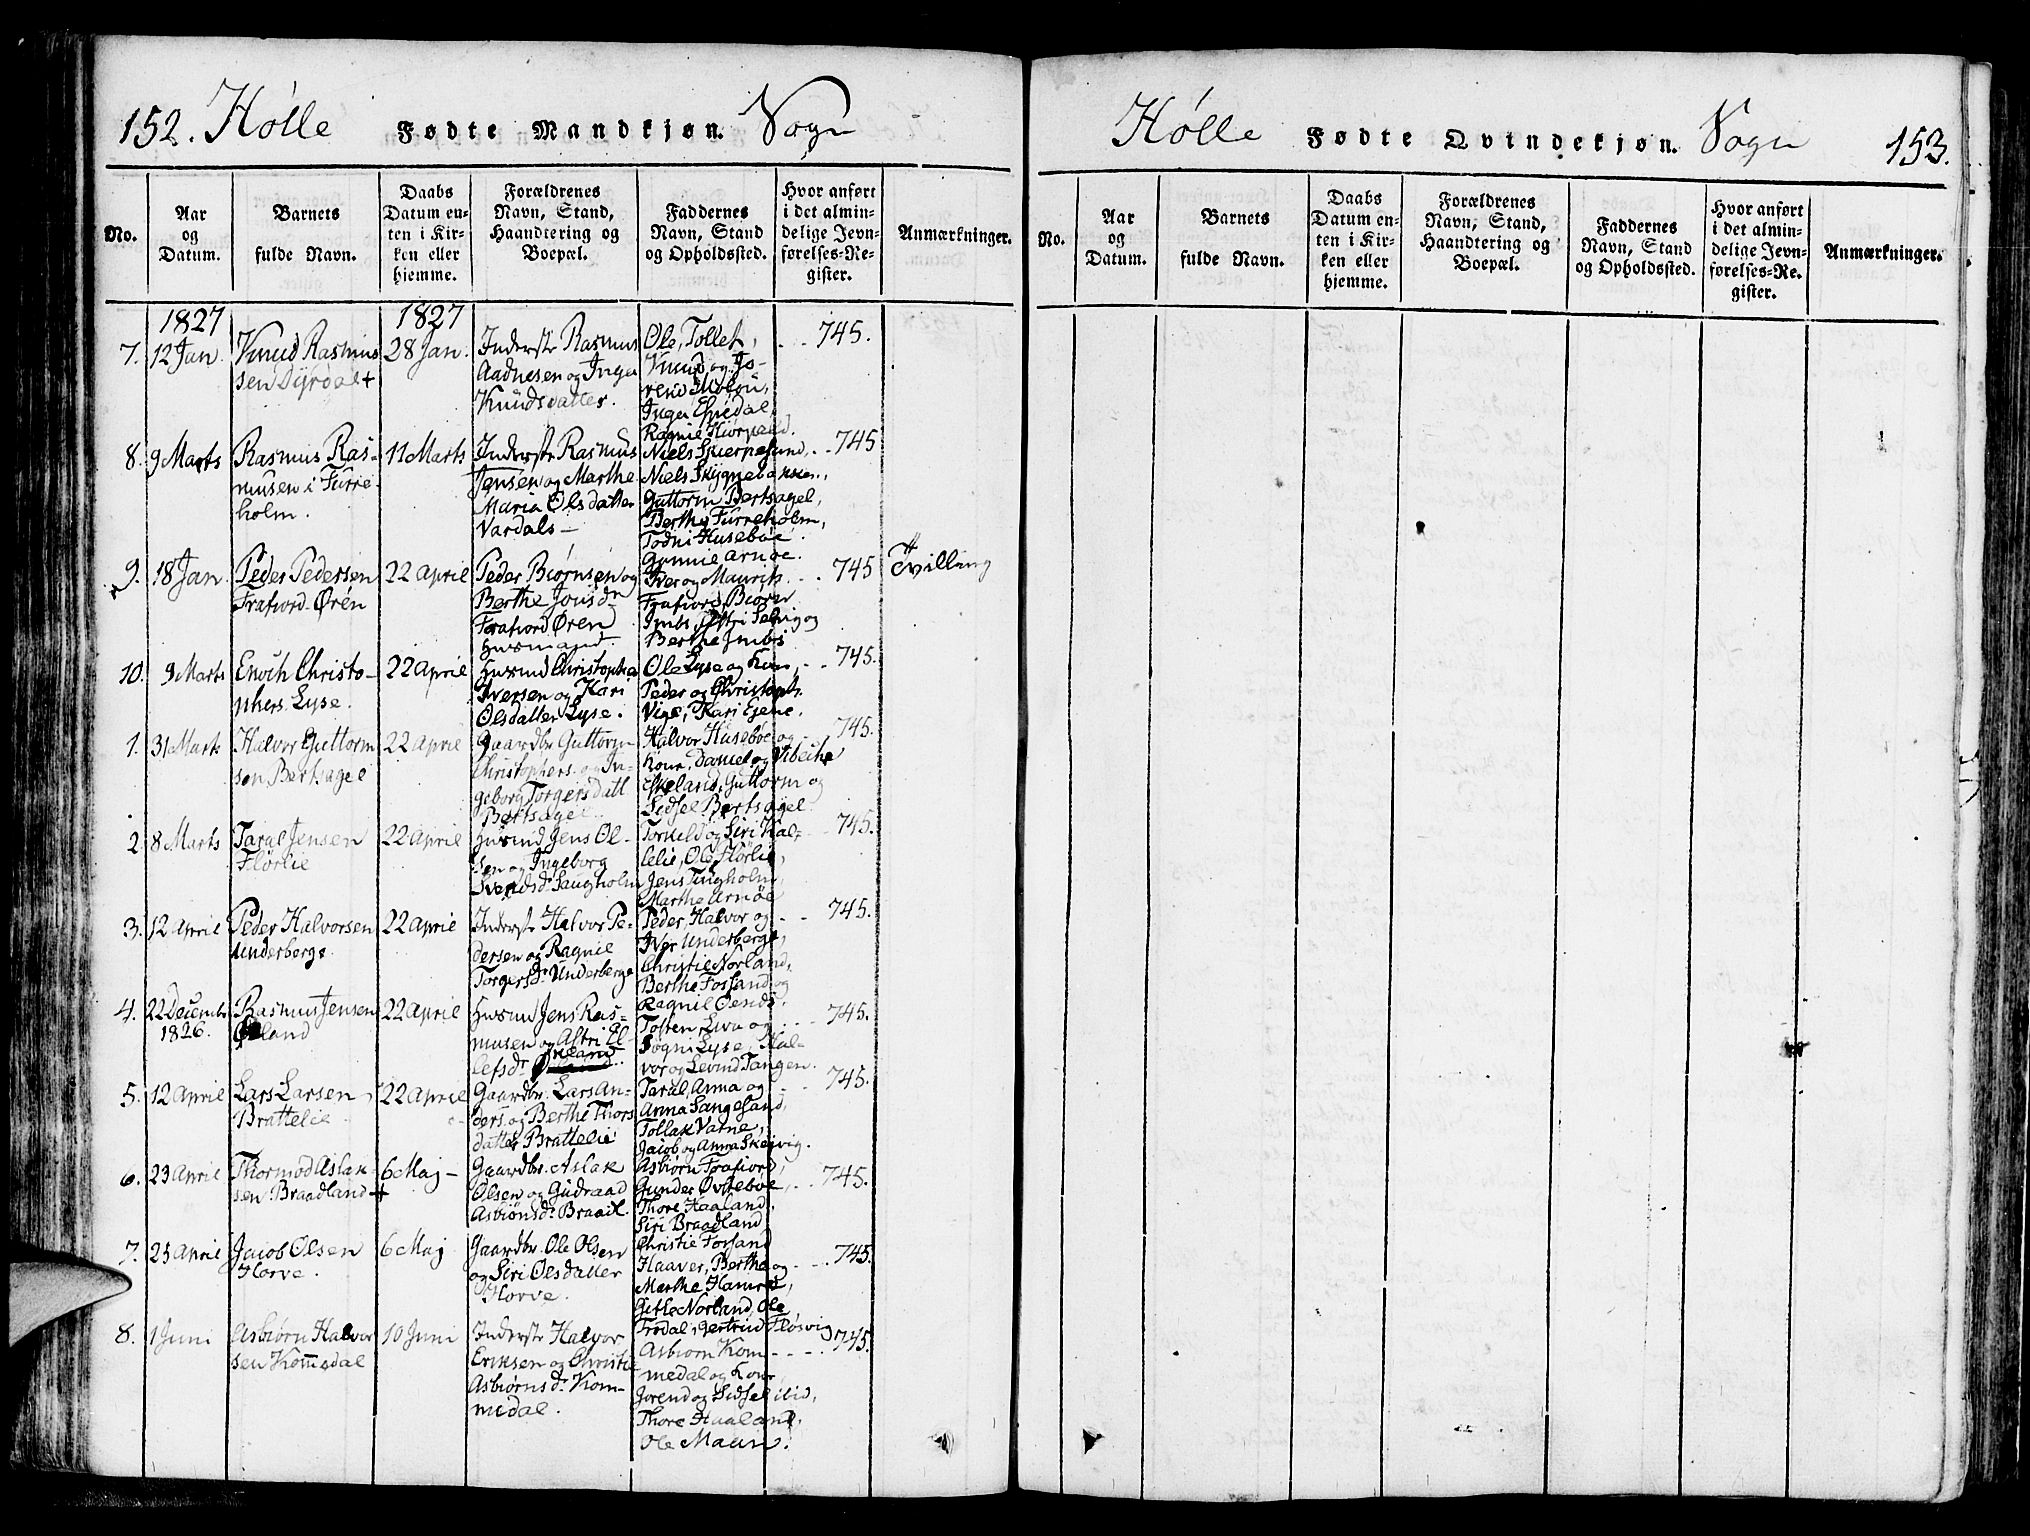 152. Hølle Fødte Mandkjøn. Sogn
No.
Aar
og
Datum.
Barnets
fulde Navn.
Daabs
Datum en-
ten i Kir-
ken eller
hjemme.
Forældrenes
Navn, Stand,
Haandtering og
Boepæl.
Faddernes
Navn, Stand
og Opholdssted.
Hvor anført
i det almin-
delige Jevn-
førelses-Re-
gister.
Anmærkninger.
1827
1827
7.
12 Jan
Knud Rasmus
sen Dyrdal +
28 Jan.
Inderste Rasmus
Aadnesen og Inger
Knudsdatter.
Ole, Tollef,
Knud og Jo-
rend
Inger Espedal,
Ragnil
745.
8.
9 Marts
Rasmus Ras-
musen i Furre-
holm.
11 Marts
Inderste Rasmus
Jensen og Marthe
Maria Olsdatter
Vardals -
Niels
Niels Skyggebakken,
Guttorm Bertsagel,
Berthe Furreholm,
Todni Husebøe
Gunnie Arnøe.
745
9.
18 Jan
Peder Pedersen
Frafiord-Ørén
22 April
Peder Biørnsen og
Berthe Jonsdr
Frafiord Øren
Husmand
Iver og Maurits
Frafiord, Biørn
Imbs, Astri Selvig og
Berthe Imbs
745
Tvilling
10.
9 Marts
Enoch Christo-
phers. Lyse.
22 April
Husmd Christopher
Iversen og Kari
Olsdatter Lyse.
Ole Lyse og Kone,
Peder og Christoph.
Vige, Kari Eiene.
745.
1.
31 Marts
Halvor Guttorm
sen Bertsagel
22 April
Gaardbr Guttorm
Christophers. og In-
geborg Torgersdatt
Bertsagel
Halvor Husebøe og
Kone, Daniel og Vibeche
Eskeland, Guttorm og
Sidsel Bertsagel
745.
2.
8 Marts
Taral Jensen
Flørlie
22 April
Husmd Jens Ol-
sen og Ingeborg
Svendsdr Saugholm
Torkeld og Siri Kal-
lelie, Ole Flørlie,
Jens
Marthe Arnøe
745.
3.
12 April
Peder Halvorsen
Underberge.
22 April
Inderste Halvor Pe-
dersen og Ragnil
Torgersdr Underberge
Peder, Halvor og
Iver Underberge,
Christie Norland,
Berthe Fossand og
Ragnil
745.
4.
22 Decembr
1826.
Rasmus Jensen
22 April
Husmd Jens Ras-
musen og Astri El-
lefsdr
Tosten Lura og
Søgni Lyse, Hal-
vor og Levind Tangen.
745.
5.
12 April
Lars Larsen
Brattelie
22 April
Gaardbr. Lars An-
ders. og Berthe Thors
datter Brattelie
Taral, Anna og
Anna Sangesand,
Tollak Varne,
Jacob og Anna Skeivig.
745.
6.
23 April
Thormod Aslak-
sen Braadland +
6 Maj -
Gaardbr. Aslak
Olsen og Gudraad
Asbiønsdr Braadl.
Asbiørn Frafiord,
Gunder Øvrebøe,
Thore Haaland,
Siri Braadland
745.
7.
25 April
Jacob Olsen
Horve.
6 Maj
Gaardbr. Ole Olsen
og Siri Olsdatter
Horve.
Christie Forsand
Haaver, Berthe og
Marthe Hamre,
Gitle Norland, Ole
Frodal, Gertrud Fløsvig
745.
8.
1 Juni
Asbiørn Halvor
sen Kom̅edal
10 Juni
Inderste Halvor
Eriksen og Christie
Asbiørnsdr Kom-
medal.
Asbiørn Kom-
medal og Kone,
Jorend og Sidsel ibid,
Thore Haaland,
Ole Maun.
745.
Hølle Fødte Qvindekjøn. Sogn 153.
No.
Aar
og
Datum.
Barnets
fulde Navn.
Daabs
Datum en-
ten i Kir-
ken eller
hjemme.
Forældrenes
Navn, Stand,
Haandtering og
Boepæl.
Faddernes
Navn, Stand
og Opholdssted.
Hvor anført
i det almin-
delige Jevn-
førelses-Re-
gister.
Anmærkninger.